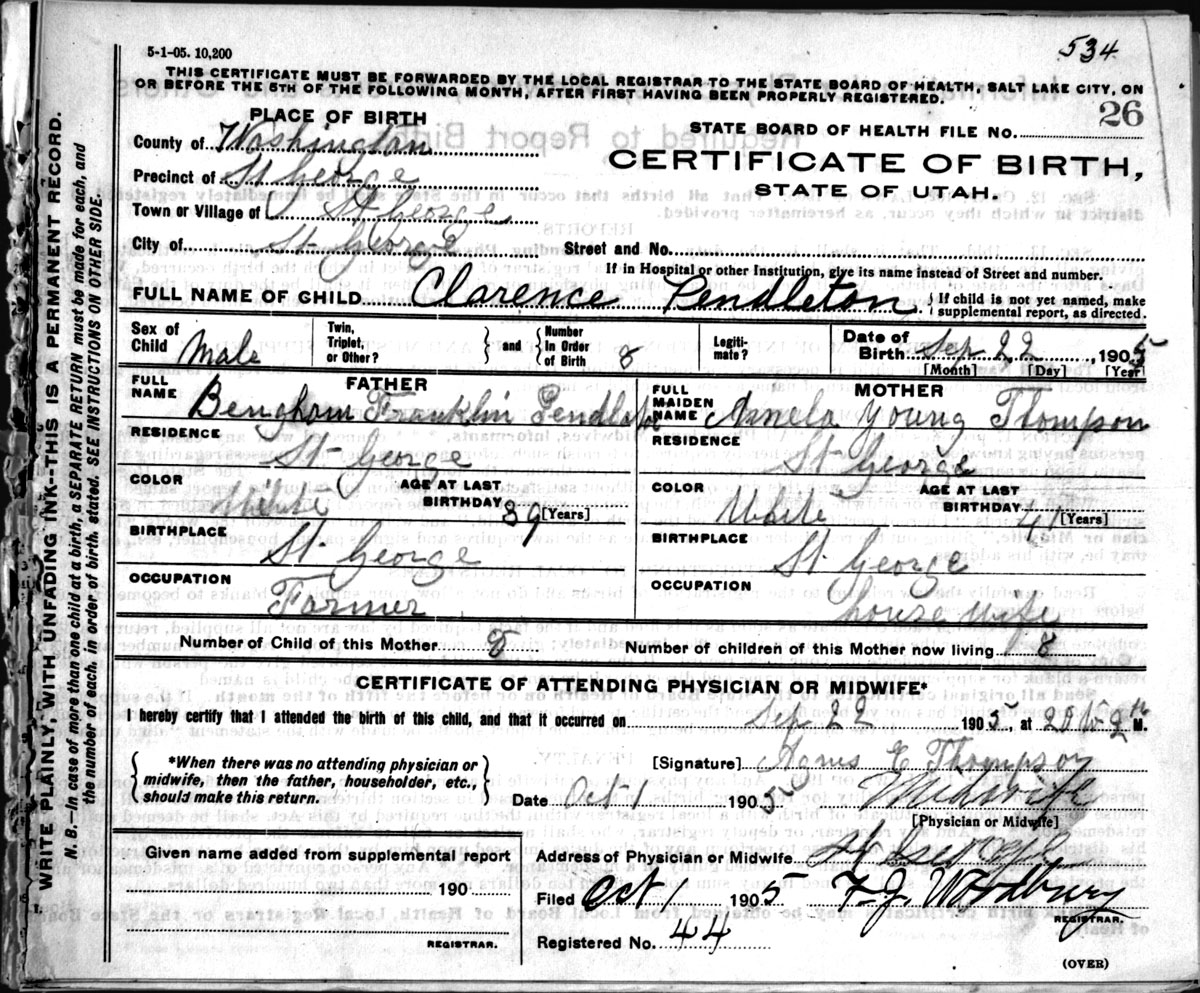 5-1-05. 10,200
534
THIS CERTIFICATE MUST BE FORWARDED BY THE LOCAL REGISTRAR TO THE STATE BOARD OF HEALTH, SALT LAKE CITY, ON
OR BEFORE THE 5TH OF THE FOLLOWING MONTH, AFTER FIRST HAVING BEEN PROPERLY REGISTERED.
PLACE OF BIRTH
STATE BOARD OF HEALTH FILE NO. 26
County of Washington
CERTIFICATE OF BIRTH,
Precinct of St George
STATE OF UTAH.
Town or Village of St George
City of St George Street and No.
If in Hospital or other Institution, give its name instead of Street and number.
FULL NAME OF CHILD Clarence Pendleton. { If child is not yet named, make
supplemental report, as directed.
Sex of Child Male
Twin, Triplet, or Other? } and { Number In Order of Birth 8
Legiti-mate?
Date of Birth Sep 22, 1905
[Month] [Day] [Year]
FATHER
FULL NAME Franklin Pendleton
RESIDENCE St George
COLOR White AGE AT LAST BIRTHDAY 39 [Years]
BIRTHPLACE St George
OCCUPATION Farmer
MOTHER
FULL MAIDEN NAME Young Thompson
RESIDENCE St George
COLOR White AGE AT LAST BIRTHDAY 41 [Years]
BIRTHPLACE St George
OCCUPATION house wife
Number of Child of this Mother 8
Number of children of this Mother now living 8
CERTIFICATE OF ATTENDING PHYSICIAN OR MIDWIFE*
I hereby certify that I attended the birth of this child, and that it occurred on Sep 22 1905, at M.
*When there was no attending physician or
midwife, then the father, householder, etc.,
should make this return.
[Signature] E Thompson
Date Oct 1 1905 Midwife
[Physician or Midwife]
Given name added from supplemental report
190
REGISTRAR.
Address of Physician or Midwife St George
Filed Oct 1 1905 F. J. Woodbury
REGISTRAR.
Registered No. 44
(OVER)
WRITE PLAINLY, WITH UNFADING INK--THIS IS A PERMANENT RECORD.
N. B.--In case of more than one child at a birth, a SEPARATE RETURN must be made for each, and
the number of each, in order of birth, stated. SEE INSTRUCTIONS ON OTHER SIDE.